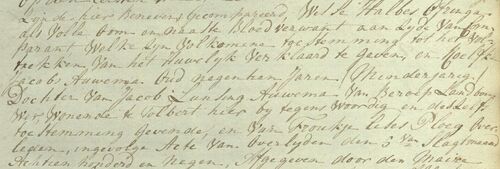 Zijde hier benevens gecompareerd Wiltie Halbes
als Volle Oom en naaste Bloedverwant van Zyde van
parant Welke Zijn Volkomene toestemming tot het Vol
trekken Van het Huwlijk Verklaard te geven, en
Jacobs Auwema Oud negenhen Jaren (Minderjarig)
Dochter Van Jacob Lunsing Auwema Van beroep Landbou
wer Wonende te Tolbert hier by tegens woordig en desselfs
toestemming Gevende, en Van Froukje Iebes Ploeg Over
leden, ingevolge Acte Van Overlyden den 5 Van Slagtmaand
Achtien honderd en Negen, Afgegeven door den Maire